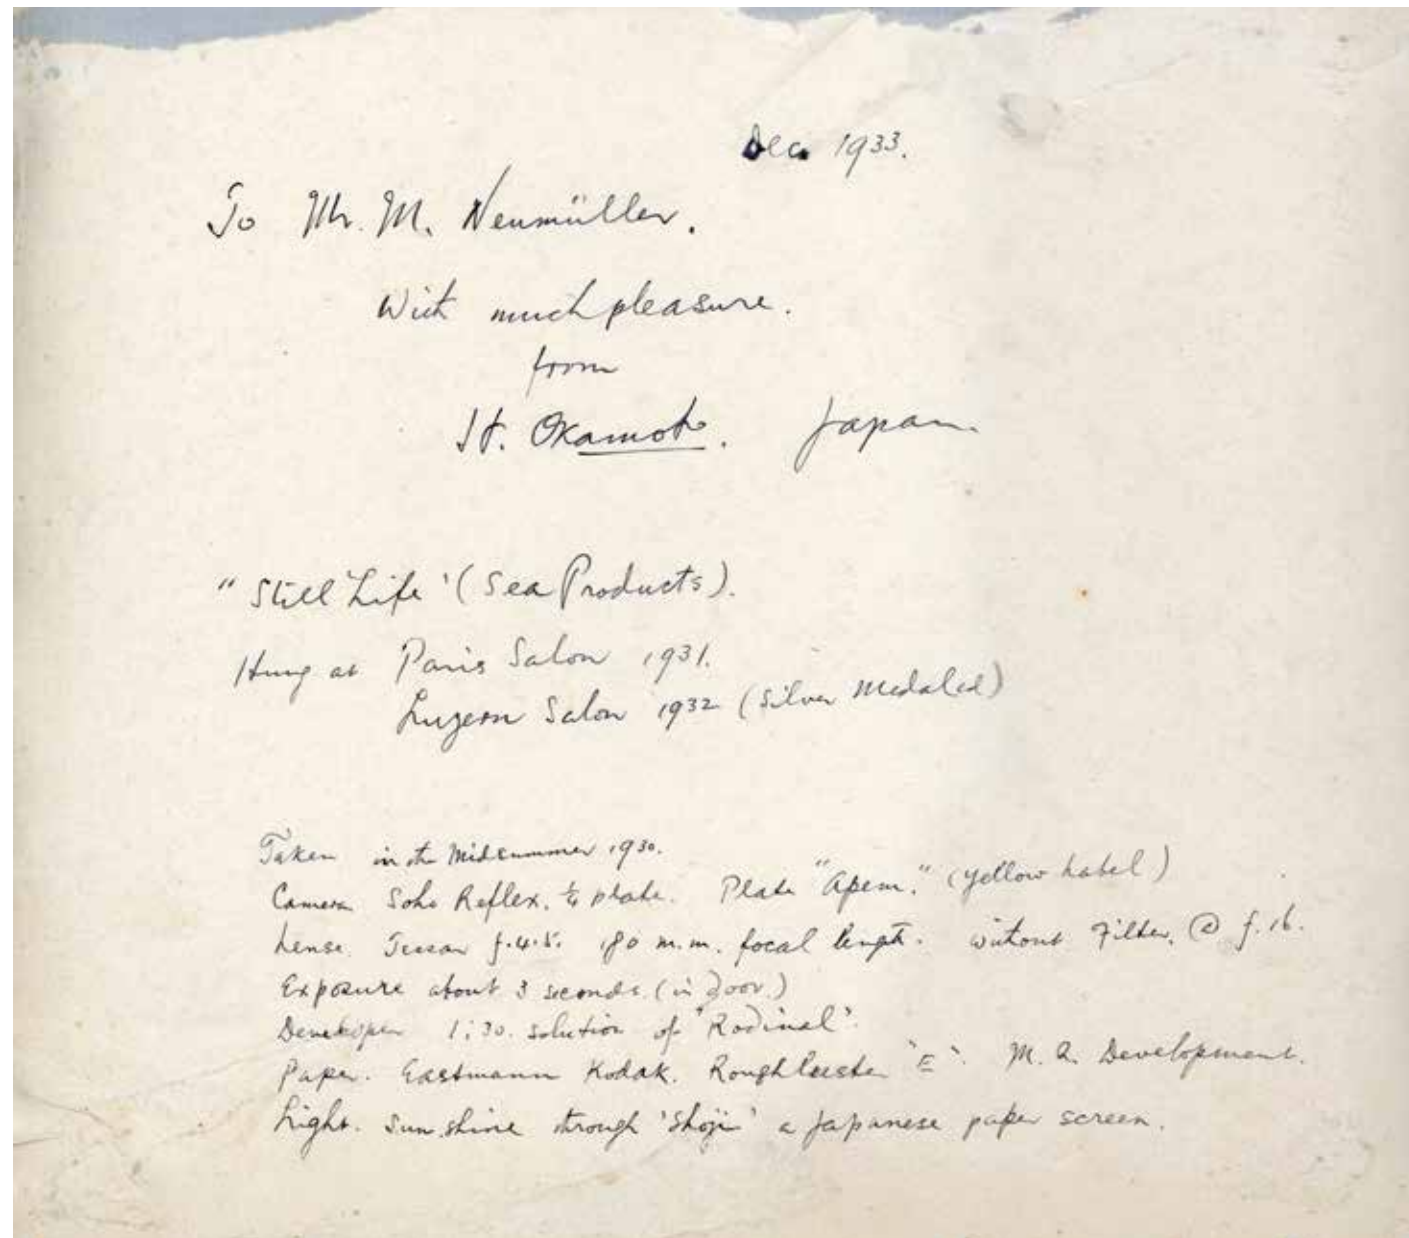 Dec. 1933.
To Mr. M. Neumüller.
With much pleasure.
from
St. Okamoto. Japan
"Still Life' (Sea Products).
Hung at Paris Salon 1931.
Luzern Salon 1932 (Silver Medaled)
Taken in the Midsummer 1930.
Camera Soho Reflex. ¼ plate. Plate "Apem." (Yellow Label)
Lense. Tessar f.4.5. 180 m.m. focal length. without Filter. @ f.16.
Exposure about 3 seconds. (in door.)
Developer 1:30. solution of "Rodinal".
Paper. Eastmann Kodak. Roughluster 'E'. M.Q. Development.
Light. Sun shine through 'Shoji' a Japanese paper screen.